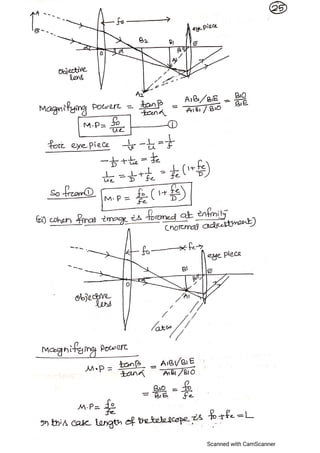 25
A
B
fo
eye piece
B2 B1 E
O
α
β
A1
Objective
lens
A2
Magnifying Power = tanβ/tanα = A1B1/B1E / A1B1/B1O = B1O/B1E
M.P = fo/ue ——①
for eye piece 1/v - 1/u = 1/f
-1/D + 1/ue = 1/fe
1/ue = 1/D + 1/fe = 1/fe (1+ fe/D)
So from① M.P = fo/fe (1+ fe/D)
(ii) when final image is formed at infinity
(normal adjustment)
fo fe
eye piece
B1 E
O
A1
objective
lens
at ∞
Magnifying Power
M.P = tanβ/tanα = A1B1/B1E / A1B1/B1O
= B1O/B1E = fo/fe
M.P = fo/fe
In this case length of the telescope is fo+fe=L
Scanned with CamScanner